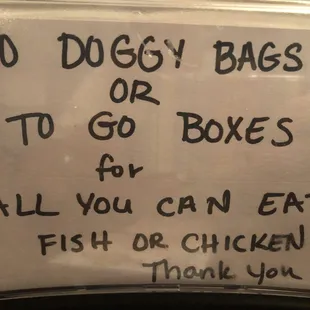 O DOGGY BAGS
OR
TO GO BOXES
for
ALL YOU CAN EAT
FISH OR CHICKEN
Thank You